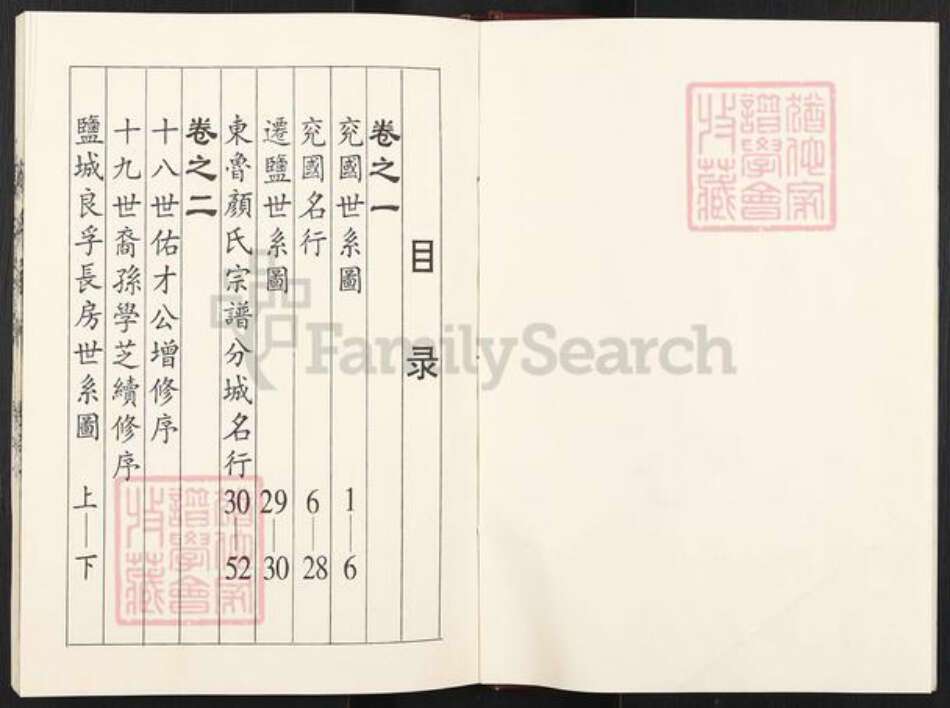 目录
卷之一
兖國世系圖 1—6
兖國名行 6—28
遷鹽世系圖 29—30
東魯顏氏宗譜分城名行 30—52
卷之二
十八世佑才公增修序
十九世裔孫學芝續修序
鹽城良孚長房世系圖 上—下
FamilySearch
猶他家
譜學會
收藏
猶他家
譜學會
收藏